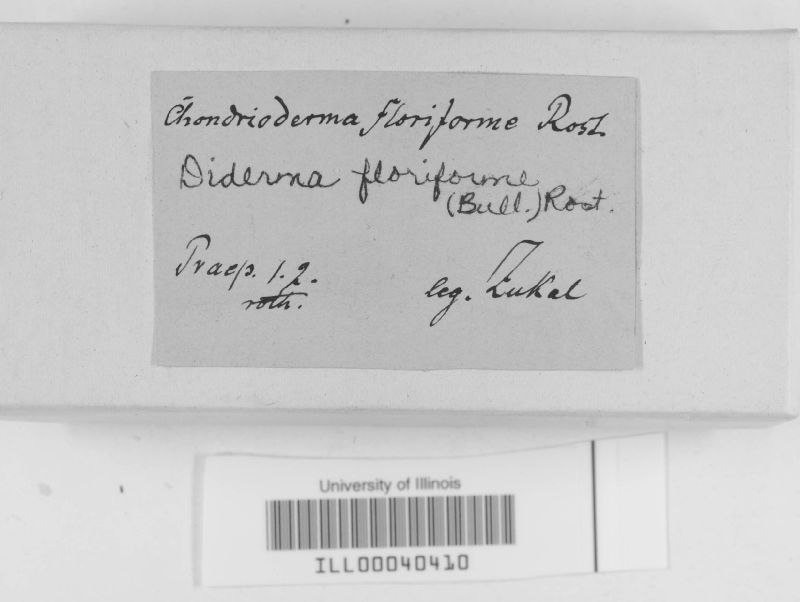 Chondrioderma floriforme Rost.
Diderma floriforme
(Bull.) Rost.
Praep. 1. 2.
roth.
leg. Zukal
University of Illinois
ILL00040410